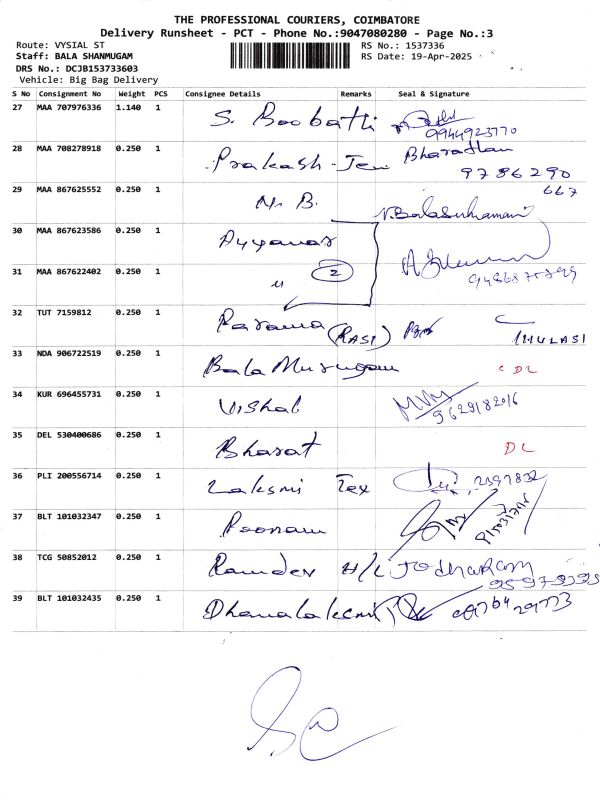 THE PROFESSIONAL COURIERS, COIMBATORE
Delivery Runsheet - PCT - Phone No.:9047080280 - Page No.:3
Route: VYSIAL ST RS No.: 1537336
Staff: BALA SHANMUGAM RS Date: 19-Apr-2025
DRS No.: DCJB153733603
Vehicle: Big Bag Delivery
S No Consignment No Weight PCS Consignee Details Remarks Seal & Signature
27 MAA 707976336 1.140 1 S. Boobathi 9944923770
28 MAA 708278918 0.250 1 Prakash - Jew Bharathan
9786290
667
29 MAA 867625552 0.250 1 N. B. V. Balasubramani
30 MAA 867623586 0.250 1 Ayyanar
31 MAA 867622402 0.250 1 " 2
32 TUT 7159812 0.250 1 Parama (RASI) THULASI
33 NDA 906722519 0.250 1 Bala Murugan DL
34 KUR 696455731 0.250 1 Vishal 9629182016
35 DEL 530400686 0.250 1 Bharat DL
36 PLI 200556714 0.250 1 Laksmi Tex 2397832
37 BLT 101032347 0.250 1 Poonam
38 TCG 50852012 0.250 1 Ramdev H/L Jodhuram
39 BLT 101032435 0.250 1 Dhanalakcmi